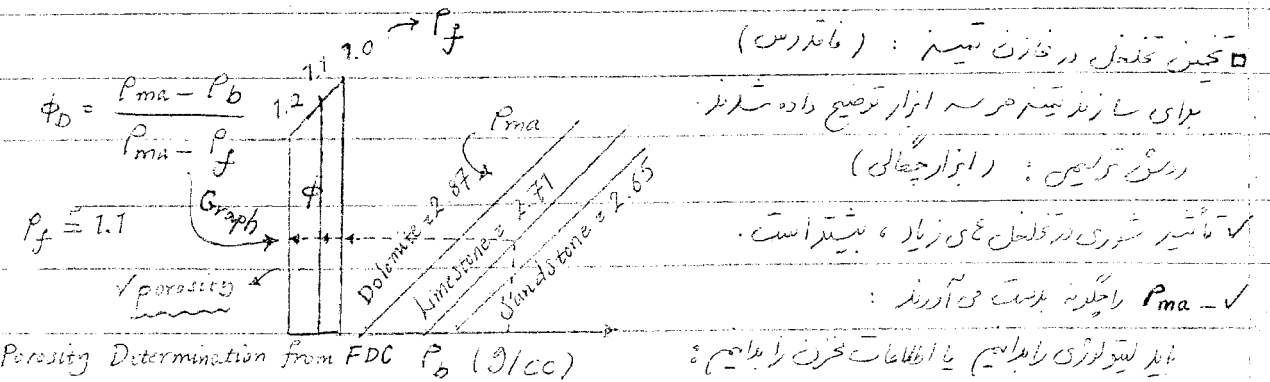 تخمین تخلخل در مخازن تمیز : (فاقد رس)
برای سازند تمیز هر سه ابزار توضیح داده شدند.
روش ترسیمی : (ابزار چگالی)
✓ تأثیر شوری در تخلخل های زیاد ، بیشتر است.
✓ ρma را چگونه بدست می آورند :
باید لیتولوژی را بدانیم یا اطلاعات مخزن را بدانیم :
ϕD = (ρma − ρb) / (ρma − ρf)
ρf = 1.1
Graph
√ porosity
1.2 1.1 1.0 → ρf
ϕ
ρma
Dolomite = 2.87
Limestone = 2.71
Sandstone = 2.65
Porosity Determination from FDC ρb (g/cc)